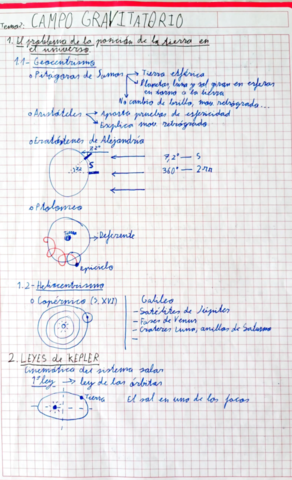 Tema: CAMPO GRAVITATORIO
1. El problema de la posición de la tierra en
el universo
1.1- Geocentrismo
Pitágoras de Samos → Tierra esférica
→ Planetas, luna y sol giran en esferas
en torno a la tierra
→ No cambio de brillo, mov retrógrado...
Aristóteles → Aporta pruebas de esfericidad
→ Explica mov retrógrado
Eratóstenes de Alejandría
7,2°
S
7,2° — S
360° — 2πr
Ptolomeo
Tierra
→ Deferente
→ Epiciclo
1.2- Heliocentrismo
Copérnico (S. XVI)
Galileo
- Satélites de Júpiter
- Fases de Venus
- Cráteres Luna, anillos de Saturno
-
2. LEYES de KEPLER
Cinemática del sistema solar
1ª ley → ley de las órbitas
Tierra
El sol en uno de los focos